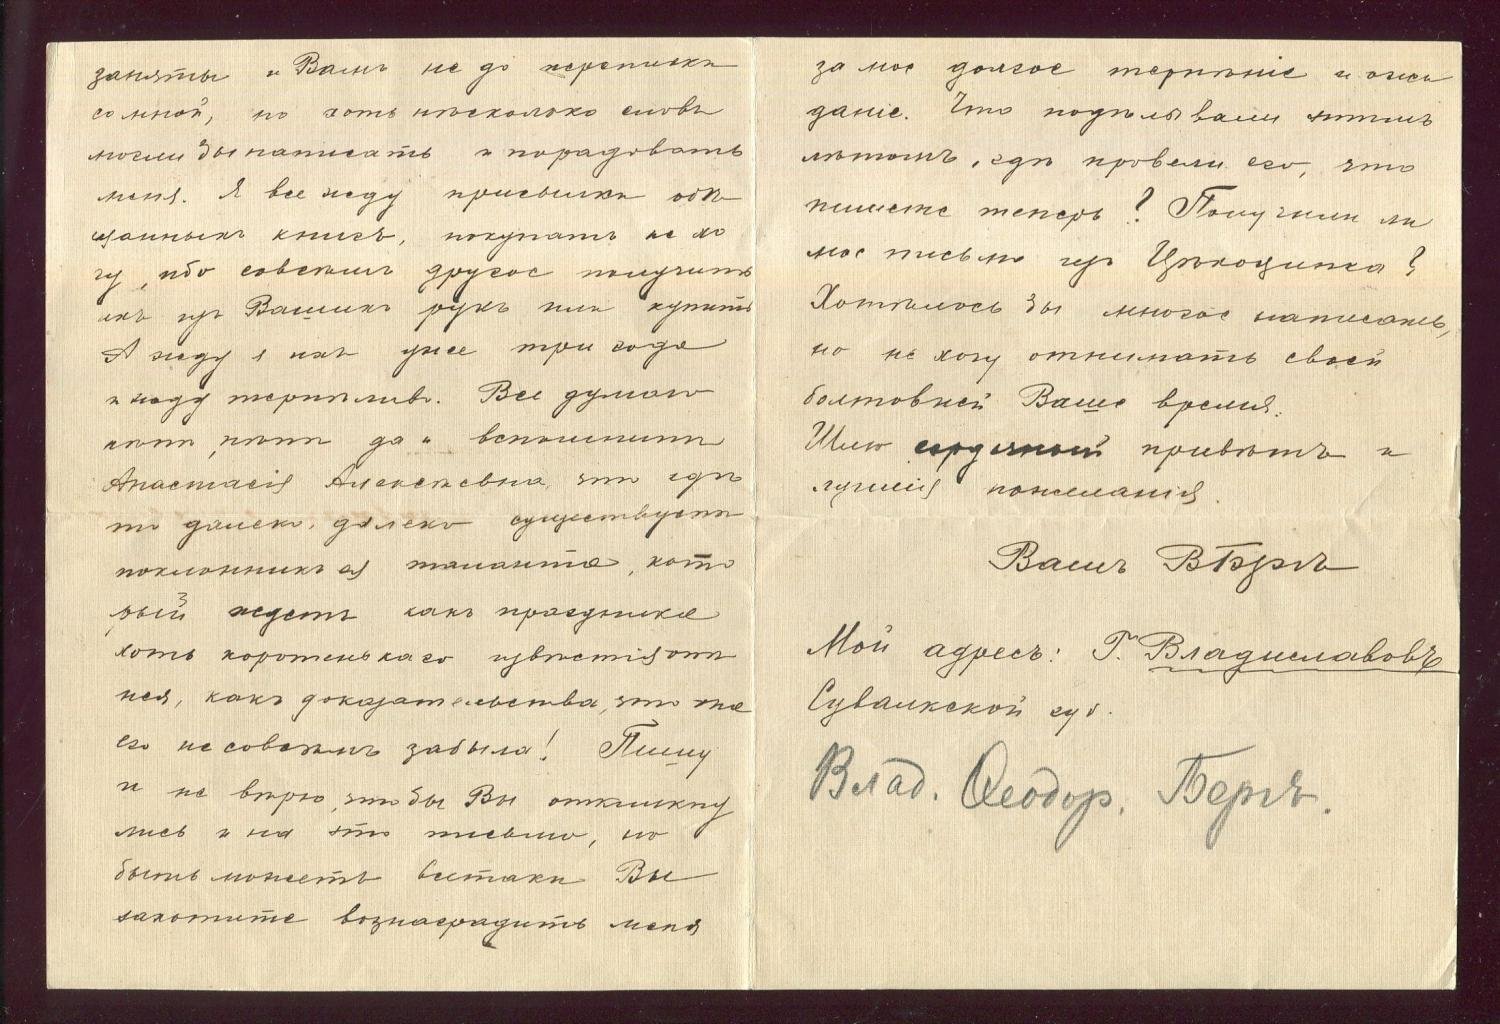 заняты и Вамъ не до переписки
со мной, но хоть нѣсколько словъ
могли бы написать и порадовать
меня. Я все жду присылки обѣ
щанныхъ книгъ, покупать не хо
чу, ибо совсѣмъ другое получить
ихъ изъ Вашихъ рукъ или купить
А жду я ихъ уже три года
и жду терпѣливо. Все думаю
нѣтъ, нѣтъ да и вспомнитъ
Анастасія Алексѣевна, что гдѣ
то далеко, далеко существуетъ
поклонникъ ея таланта, кото
рый ждетъ какъ праздника
хоть коротенькаго извѣстія отъ
нея, какъ доказательства, что она
его не совсѣмъ забыла! Пишу
и не вѣрю, чтобы Вы откликну
лись и на это письмо, но
быть можетъ всетаки Вы
захотите вознаградить меня
за мое долгое терпѣніе и ожи
даніе. Что подѣлывали этимъ
лѣтомъ, гдѣ провели его, что
пишете теперь? Получили ли
мое письмо изъ Цѣхоцинка?
Хотѣлось бы многое написать,
но не хочу отнимать своей
болтовней Ваше время.
Шлю сердечный привѣтъ и
лучшія пожеланія.
Вашъ ВБергъ
Мой адресъ: Г. Владиславовъ
Сувалкской губ.
Влад. Ѳеодор. Бергъ.